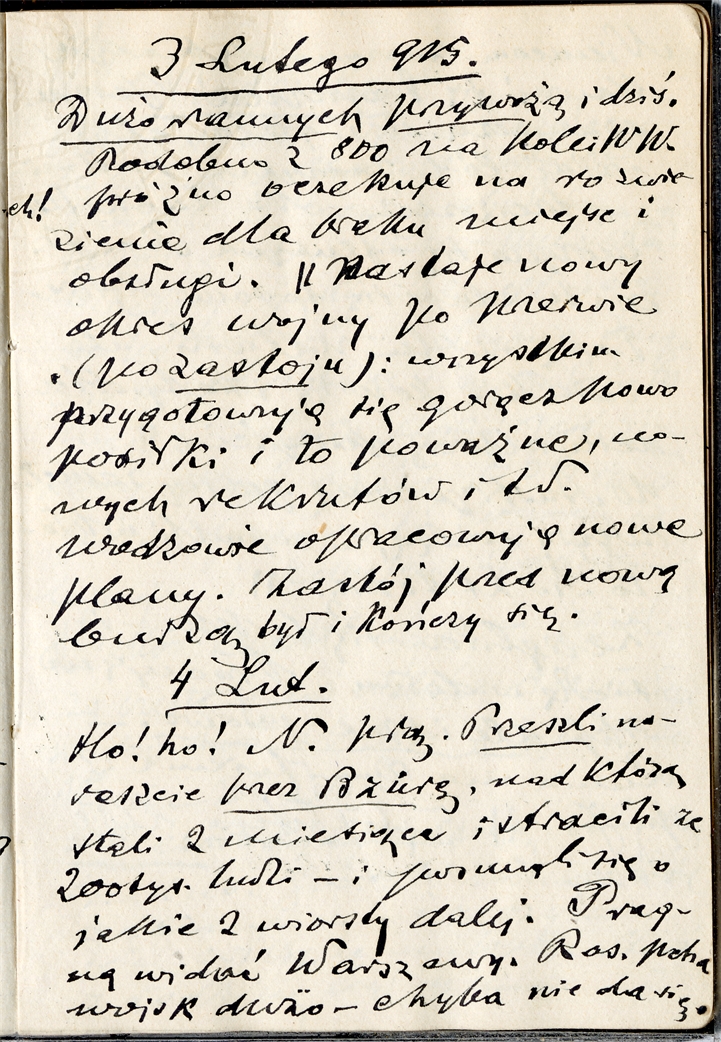 3 Lutego 915.
Dużo rannych przywożą i dziś.
Podobno z 800 na Kolei WW.
ch! próżno oczekuje na rozwie-
zienie dla braku miejsc i
obsługi. || Nastaje nowy
okres wojny po przerwie
(po zastoju): wszystkim
przygotowują się gorączkowo
posiłki i to poważne, no-
wych rekrutów i td.
wodzowie opracowują nowe
plany. Zastój przed nową
burzą był i kończy się.
4 Lut.
Ho! ho! N. prą. Przeszli na-
reszcie przez Bzurę, nad którą
stali 2 miesiące i stracili ze
200tys. ludzi – i posunęli się o
jakie 2 wiorsty dalej. Prag-
ną widać Warszawy. Ros. pcha
wojsk dużo – chyba nie da się.